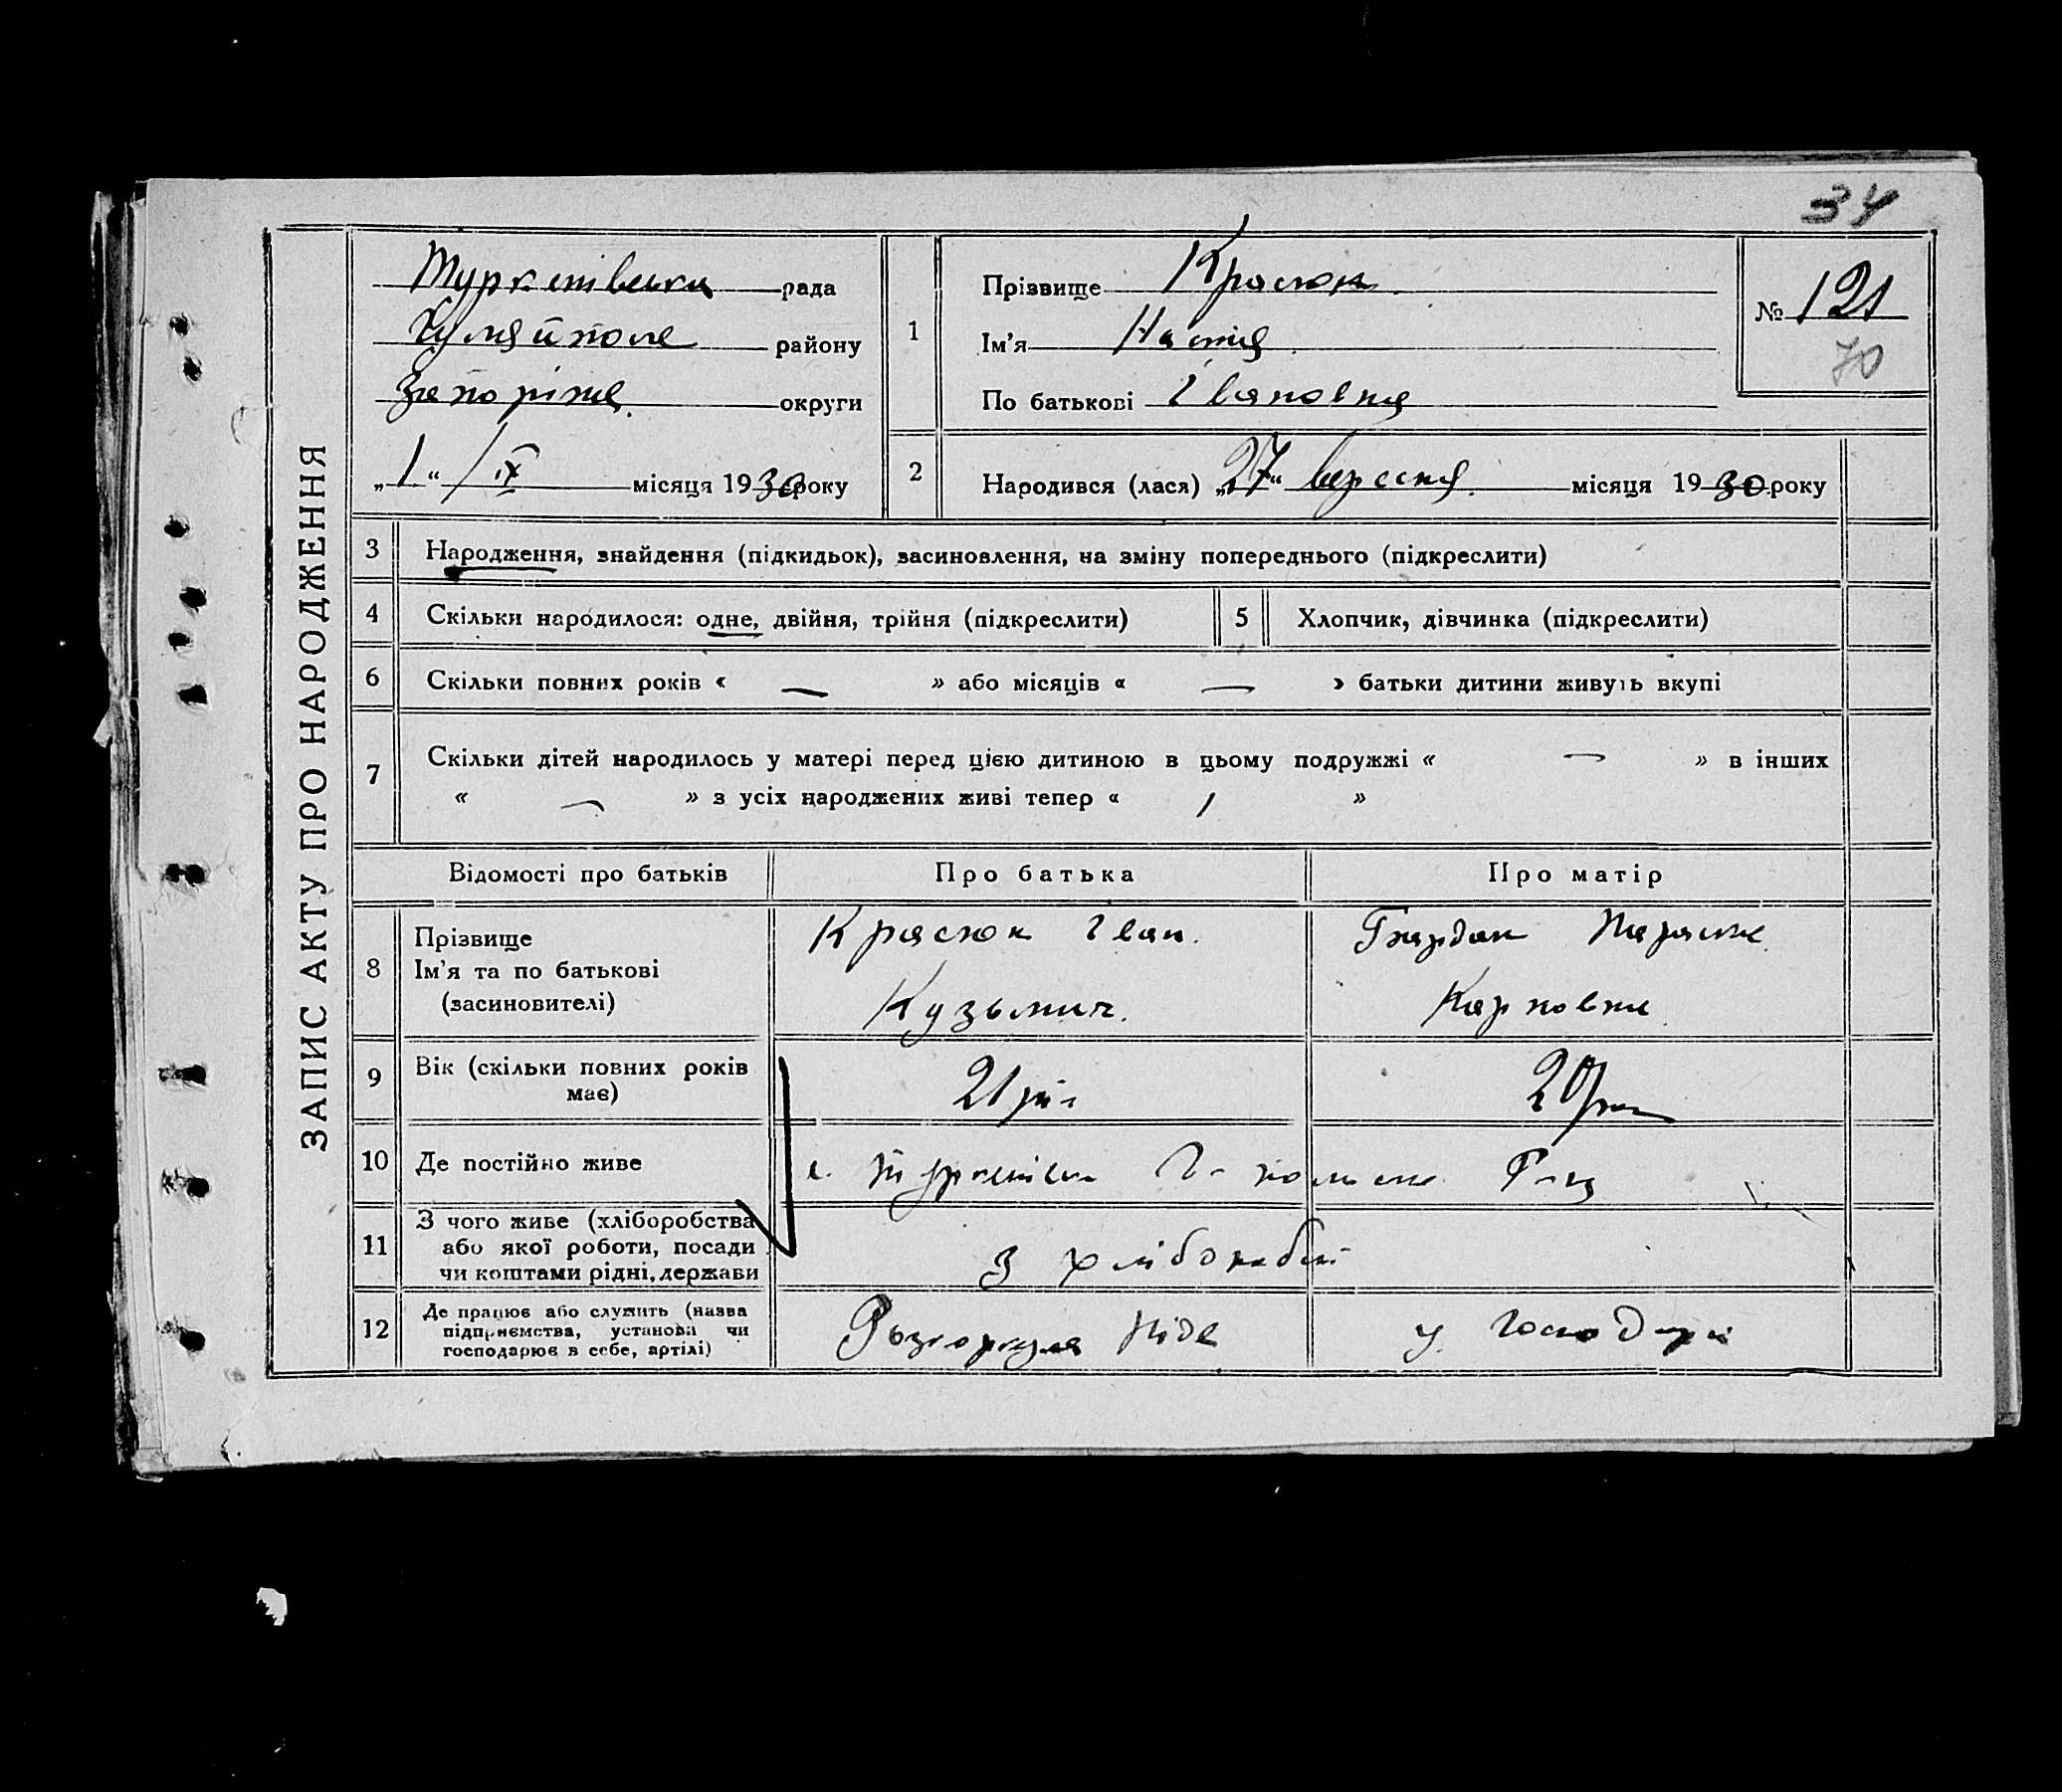 34
ЗАПИС АКТУ ПРО НАРОДЖЕННЯ
Туркенівська рада
Гуляйполе району
Запоріжя округи
„1“ / ІХ місяця 1930 року
1
Прізвище Красюк
Ім'я Настя
По батькові Івановна
№ 121
70
2 Народився (лася) „27“ вересня місяця 1930 року
3 Народження, знайдення (підкидьок), засиновлення, на зміну попереднього (підкреслити)
4 Скільки народилося: одне, двійня, трійня (підкреслити) 5 Хлопчик, дівчинка (підкреслити)
6 Скільки повних років « — » або місяців « — » батьки дитини живуть вкупі
7 Скільки дітей народилось у матері перед цією дитиною в цьому подружжі « — » в інших
« — » з усіх народжених живі тепер « 1 »
Відомості про батьків Про батька Про матір
8 Прізвище
Ім'я та по батькові
(засиновителі)
Красюк Іван
Кузьмич.
Параска
Карповна
9 Вік (скільки повних років
має)
21 рік
20 рок
10 Де постійно живе
с. Г-польськ Р-ну
11 З чого живе (хліборобства
або якої роботи, посади
чи коштами рідні, держави
з хліборобст
12 Де працює або служить (назва
підприємства, установа чи
господарює в себе, артілі)
ніде
у господарі